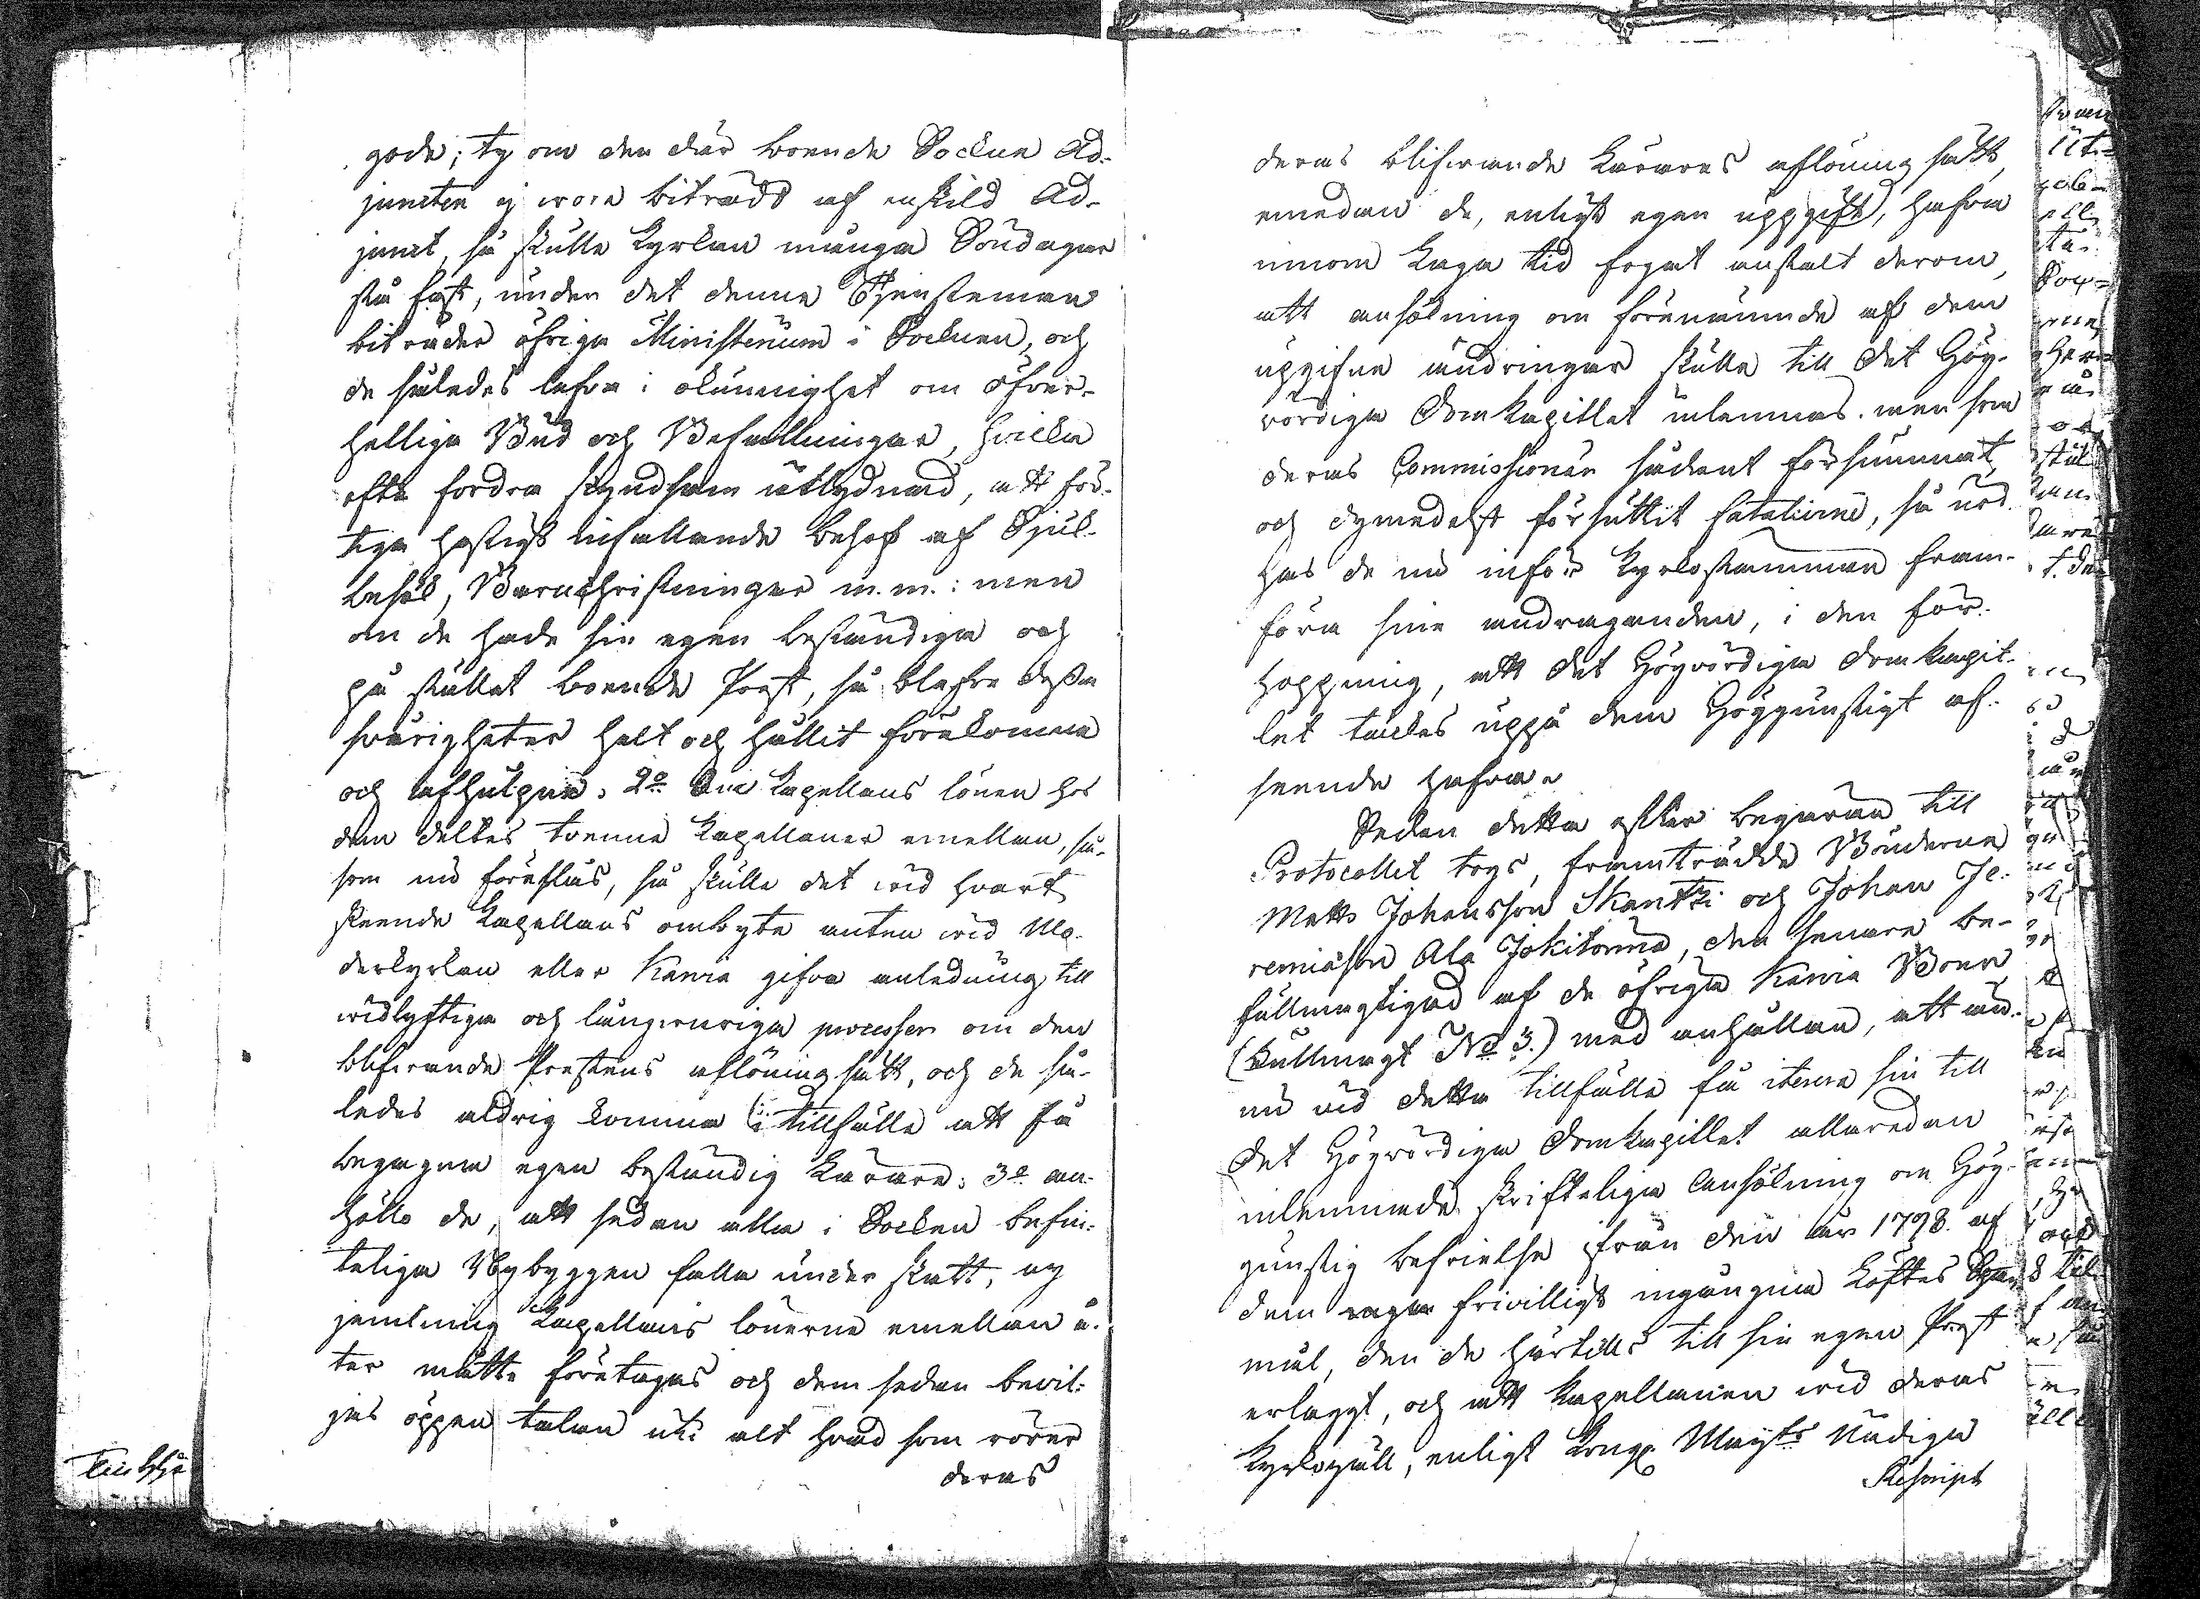 gode; ty om den där boende Sockne Ad-
juncten ej vore biträdd af enskild Ad-
junct, så skulle Kyrkan många Söndagar
stå fast, under det denne Tjensteman
biträder öfriga Ministerium i Socknen, och
de således lefva i okunnighet om öfver-
hetliga Bud och Befallningar, hvilka
ofta fordra skyndsam åtlydnad, att för-
tiga hastigt infallande behof af Sjul-
besök, Barnchristningar m.m.: men
om de hade sin egen beständiga och
på stället boende Prest, så blefve dessa
svårigheter helt och hållit förekomne
och afhulpne. 2o Om Kapellans lönen hos
dem deltes tvenne Kapellaner emellan, så-
som nu föreslås, så skulle det vid hvart
skeende Kapellans ombyte anten vid Mo-
derkyrkan eller Kania gifva anledning till
vidlyftiga och långvariga processer om den
blifvande Prestens aflöning sätt, och de så-
ledes aldrig komma i tillfälle att få
begagna egen beständig Lärare: 3o an-
höllo de, att sedan alla i Socken befin-
teliga Nybyggen falla under skatt, ny
jemkning Kapellans lönerne emellan å-
ter måtte företagas och dem sedan bevil-
jas öppen talan uti alt hvad som rörer
deras
deras blifvande Lärares aflöning sätt,
emedan de, enligt egen uppgift, hafva
innom Laga tid fogat anstalt derom,
att ansökning om förenämnde af dem
upgifne ändringar skulle till Det Hög-
vördiga Domkapitlet inlemnas. men som
deras Commissionär sådant försummat,
och dymedelst försuttit fatalierne, så nöd-
gas de nu inför Kyrkostämman fram-
föra sine andraganden, i den för-
hoppning, att Det Högvördiga Domkapit-
let täckes uppå dem Höggunstigt af-
seende hafva.
Sedan detta efter begäran till
Protocollet togs, framträdde Bönderne
Matts Johansson Skantzi och Johan Je-
remiäson Ala Jokitonna, den senare be-
fullmägtigad af de öfriga Kania Boer
(Fullmagt No 3.) med anhållan, att än-
nu vid detta tillfälle få iterera sin till
Det Högvördiga Domkapitlet allaredan
inlemnade skrifteliga ansökning om Hög-
gunstig befrielse från den år 1798. af
dem frivilligt ingångna Löftes Span-
mål, den de härtills till sin egen Prest
erlaggt, och att Kapellanen vid deras
Kyrkogäll, enligt Kongl. Mayts Nådiga
Rescript